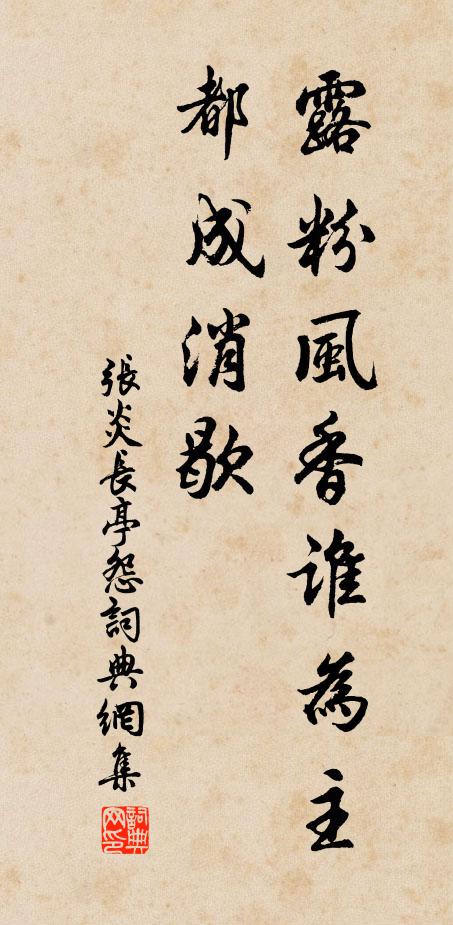 露粉風香誰為主
都成消歇
張炎長亭怨詞典網集
詞典网印